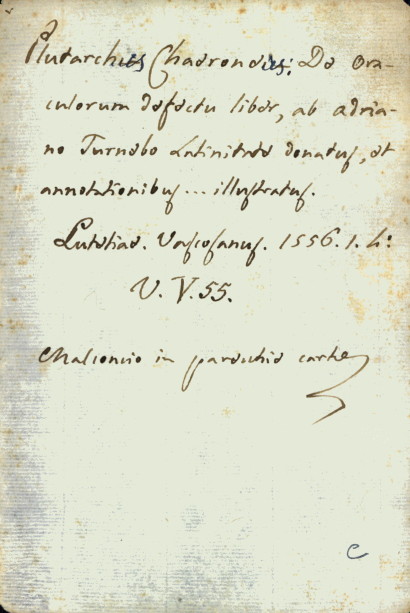 Plutarchus Chaeroneus: De Ora-
culorum defectu liber, ab adria-
no Turnebo Latinitate donatus, et
annotationibus ... illustratus.
Lutetiae. Vascosanus. 1556. 1. 4:
V. V. 55.
Malconcio in parecchie carte
C